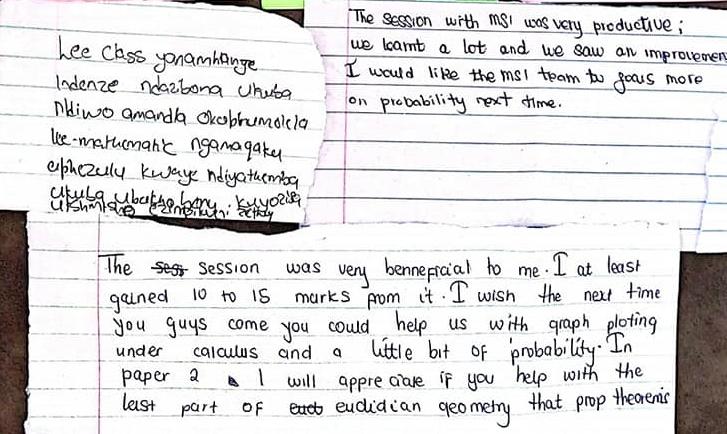 Lee class yanamhange
Indenze ndazibona ukuba
Ndiwo amandla okuphumelela
lee-mathematic nganaqaku
aphezulu kwaye ndiyathemba
ukuba ubukho benu
The session with MSI was very productive;
we learnt a lot and we saw an improvemen
I would like the MSI team to focus more
on probability next time.
The session was very benneficial to me. I at least
gained 10 to 15 marks from it. I wish the next time
you guys come you could help us with graph ploting
under calculus and a little bit of probability. In
paper 2 I will appreciate if you help with the
last part of euclidian geometry that prop theorems